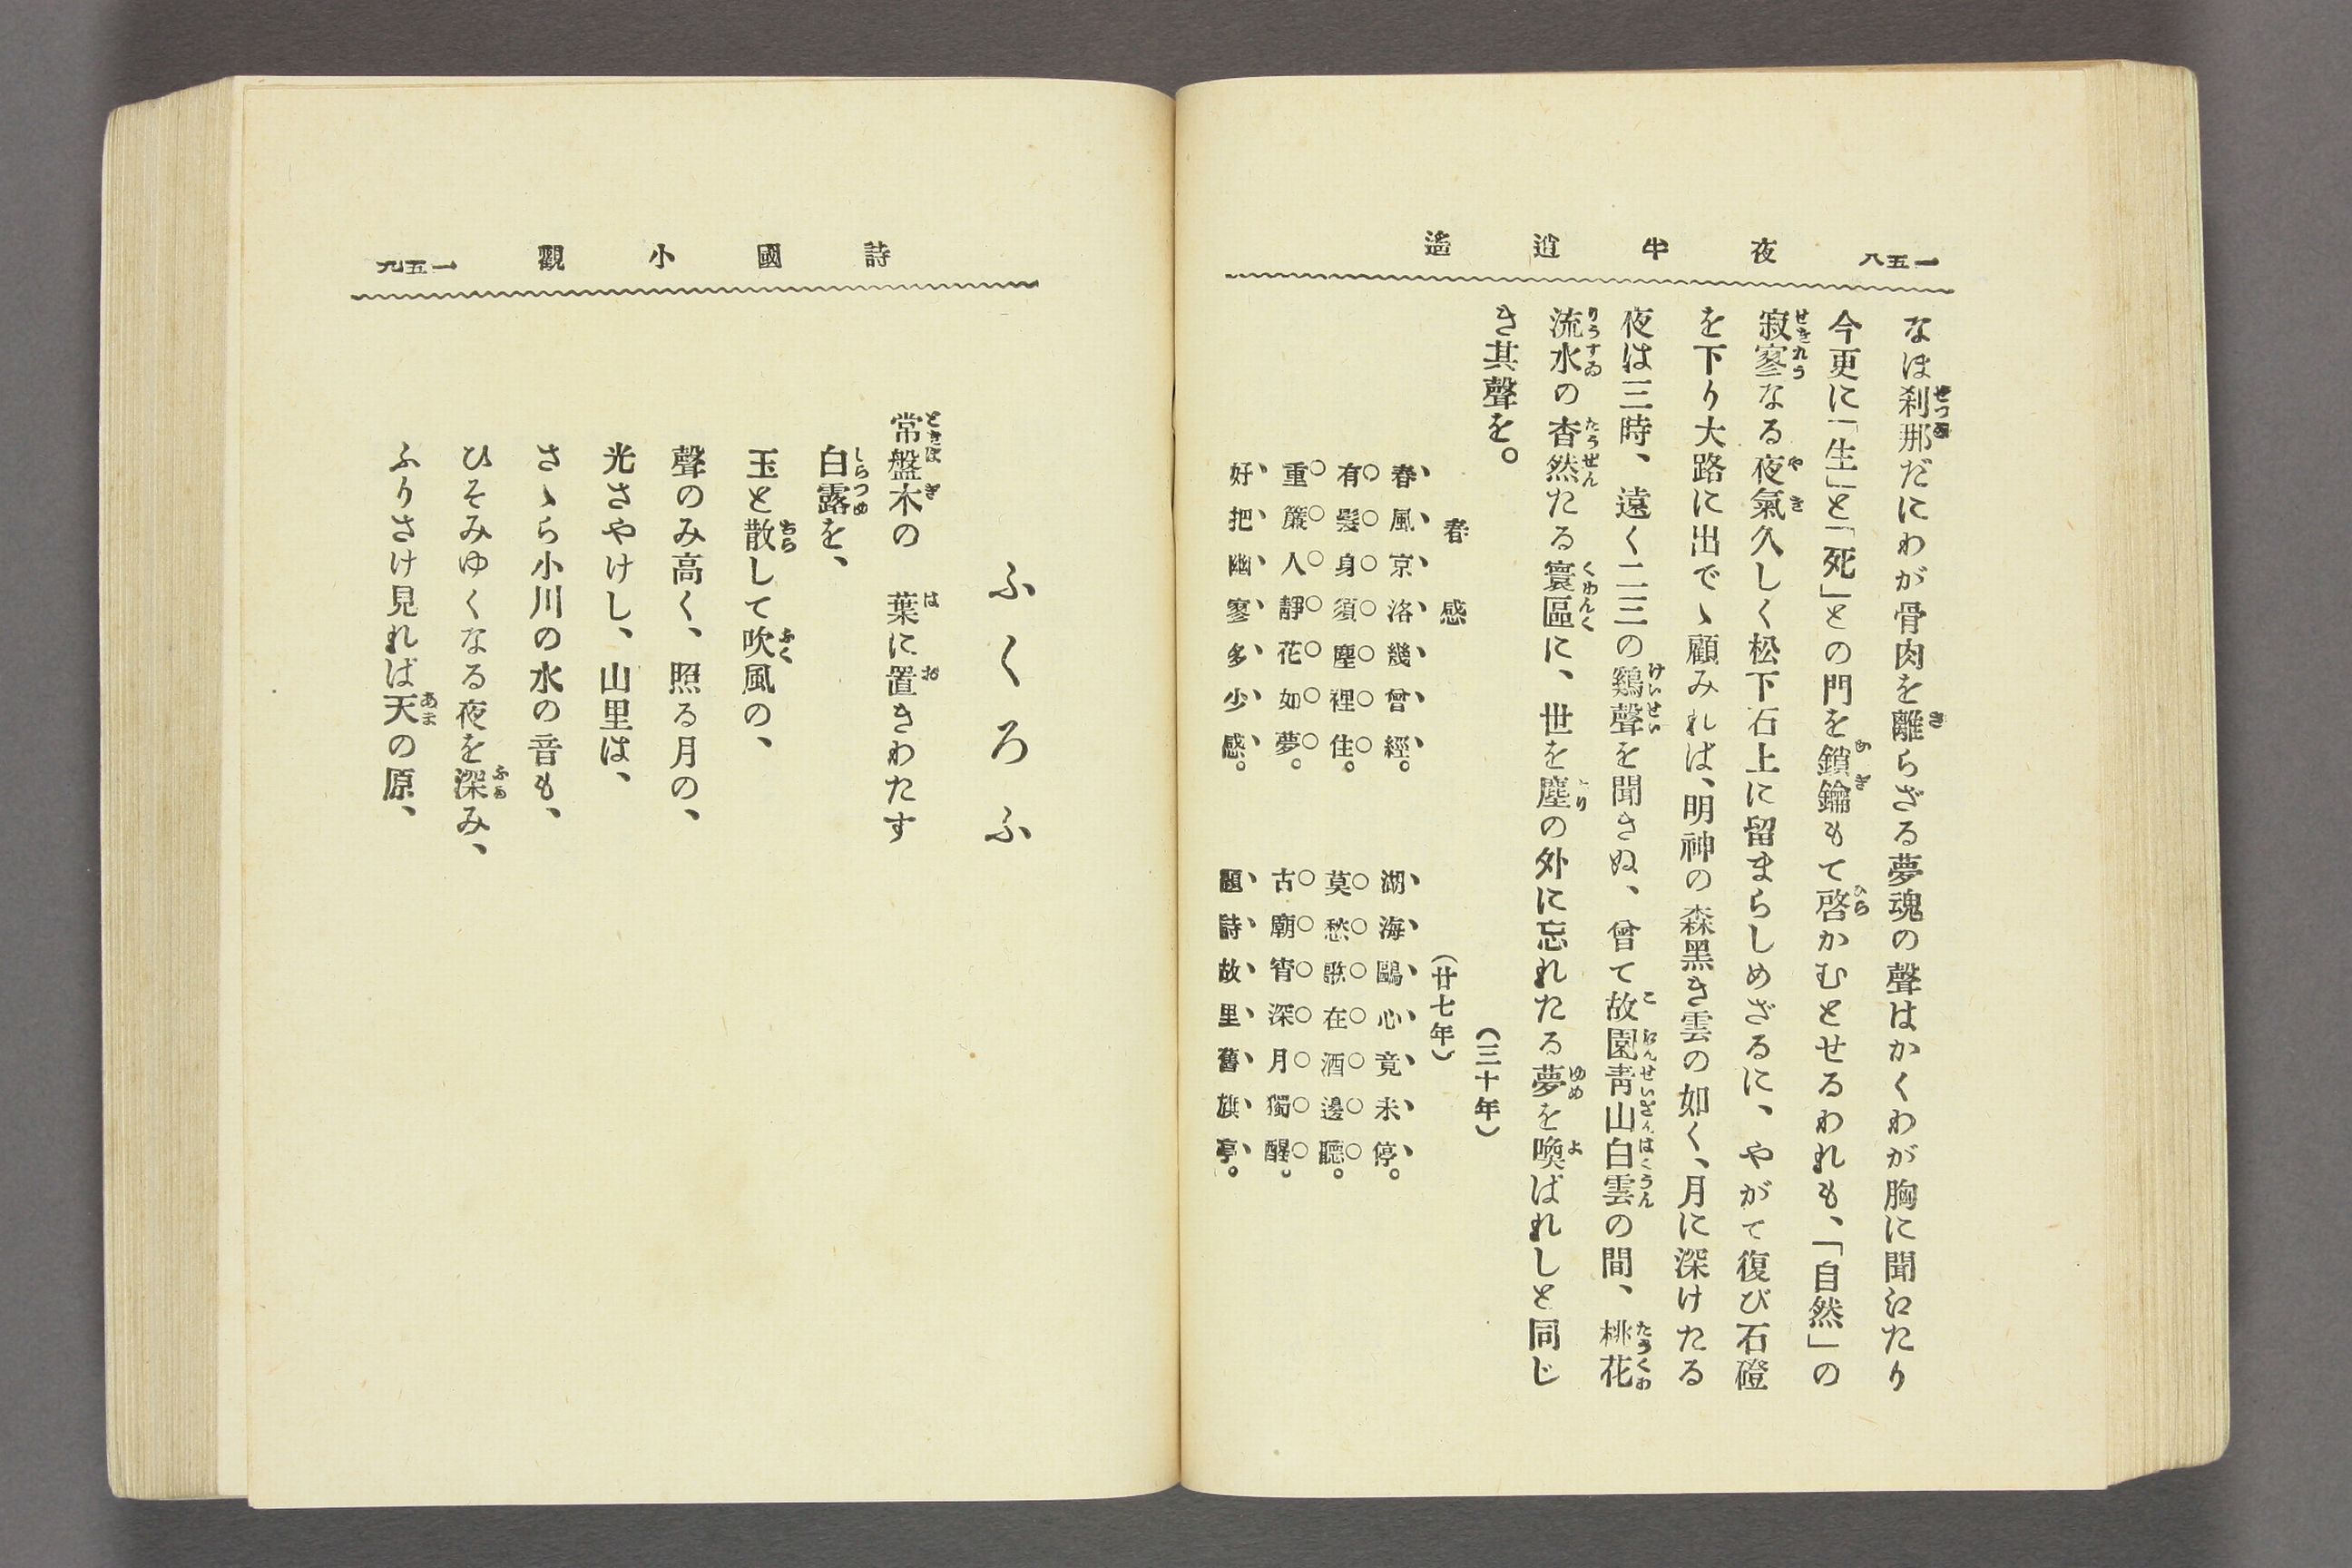 一五八
夜半逍遙
なほ刹那だにわが骨肉を離らざる夢魂の聲はかくわが胸に聞江たり
今更に「生」と「死」との門を鎖鑰もて啓かむとせるわれも、「自然」の
寂寥なる夜氣久しく松下石上に留まらしめざるに、やがて復び石磴
を下り大路に出でゝ顧みれば、明神の森黑き雲の如く、月に深けたる
夜は三時、遠く二三の鷄聲を聞きぬ、曾て故園靑山白雲の間、桃花
流水の杳然たる寰區に、世を塵の外に忘れたる夢を喚ばれしと同じ
き其聲を。
（三十年）
春感
（廿七年）
春風京洛幾曾經。
湖海鷗心竟未停。
有髮身須塵裡住。
莫愁歌在酒邊聽。
重簾人靜花如夢。
古廟宵深月獨醒。
好把幽寥多少感。
題詩故里舊旗亭。
詩國小觀
一五九
ふくろふ
常盤木の　葉に置きわたす
白露を、
玉と散して吹風の、
聲のみ高く、照る月の、
光さやけし、山里は、
さゝら小川の水の音も、
ひそみゆくなる夜を深み、
ふりさけ見れば天の原、